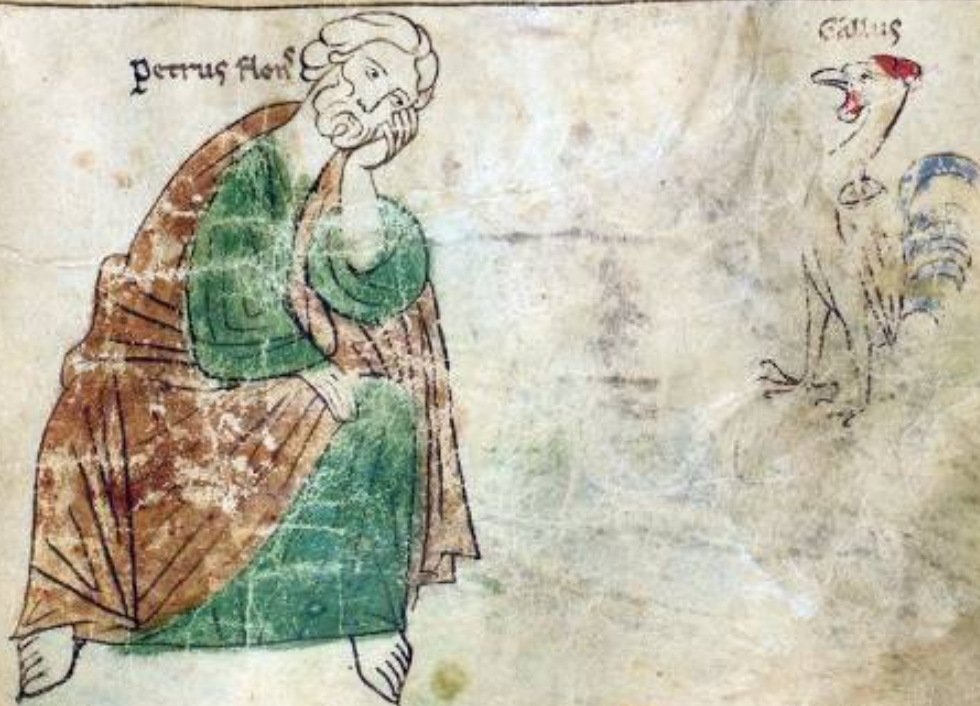 petrus flenˢ
Gallus